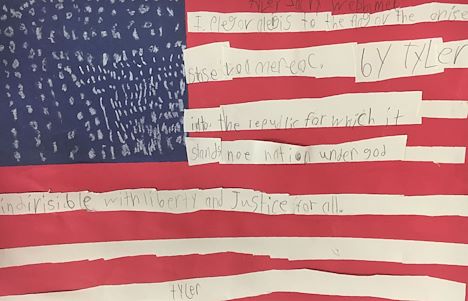 I plegor alegis to the flag or the
stase vod mercoc. by Tyler
into the republic for which it
stands noe nation under god
indirisible with liberty and Justice for all.
tyler